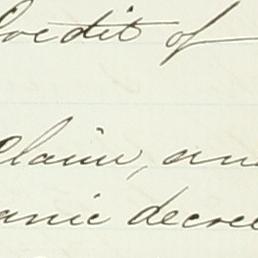 Credit of
Claim, an
anic decree